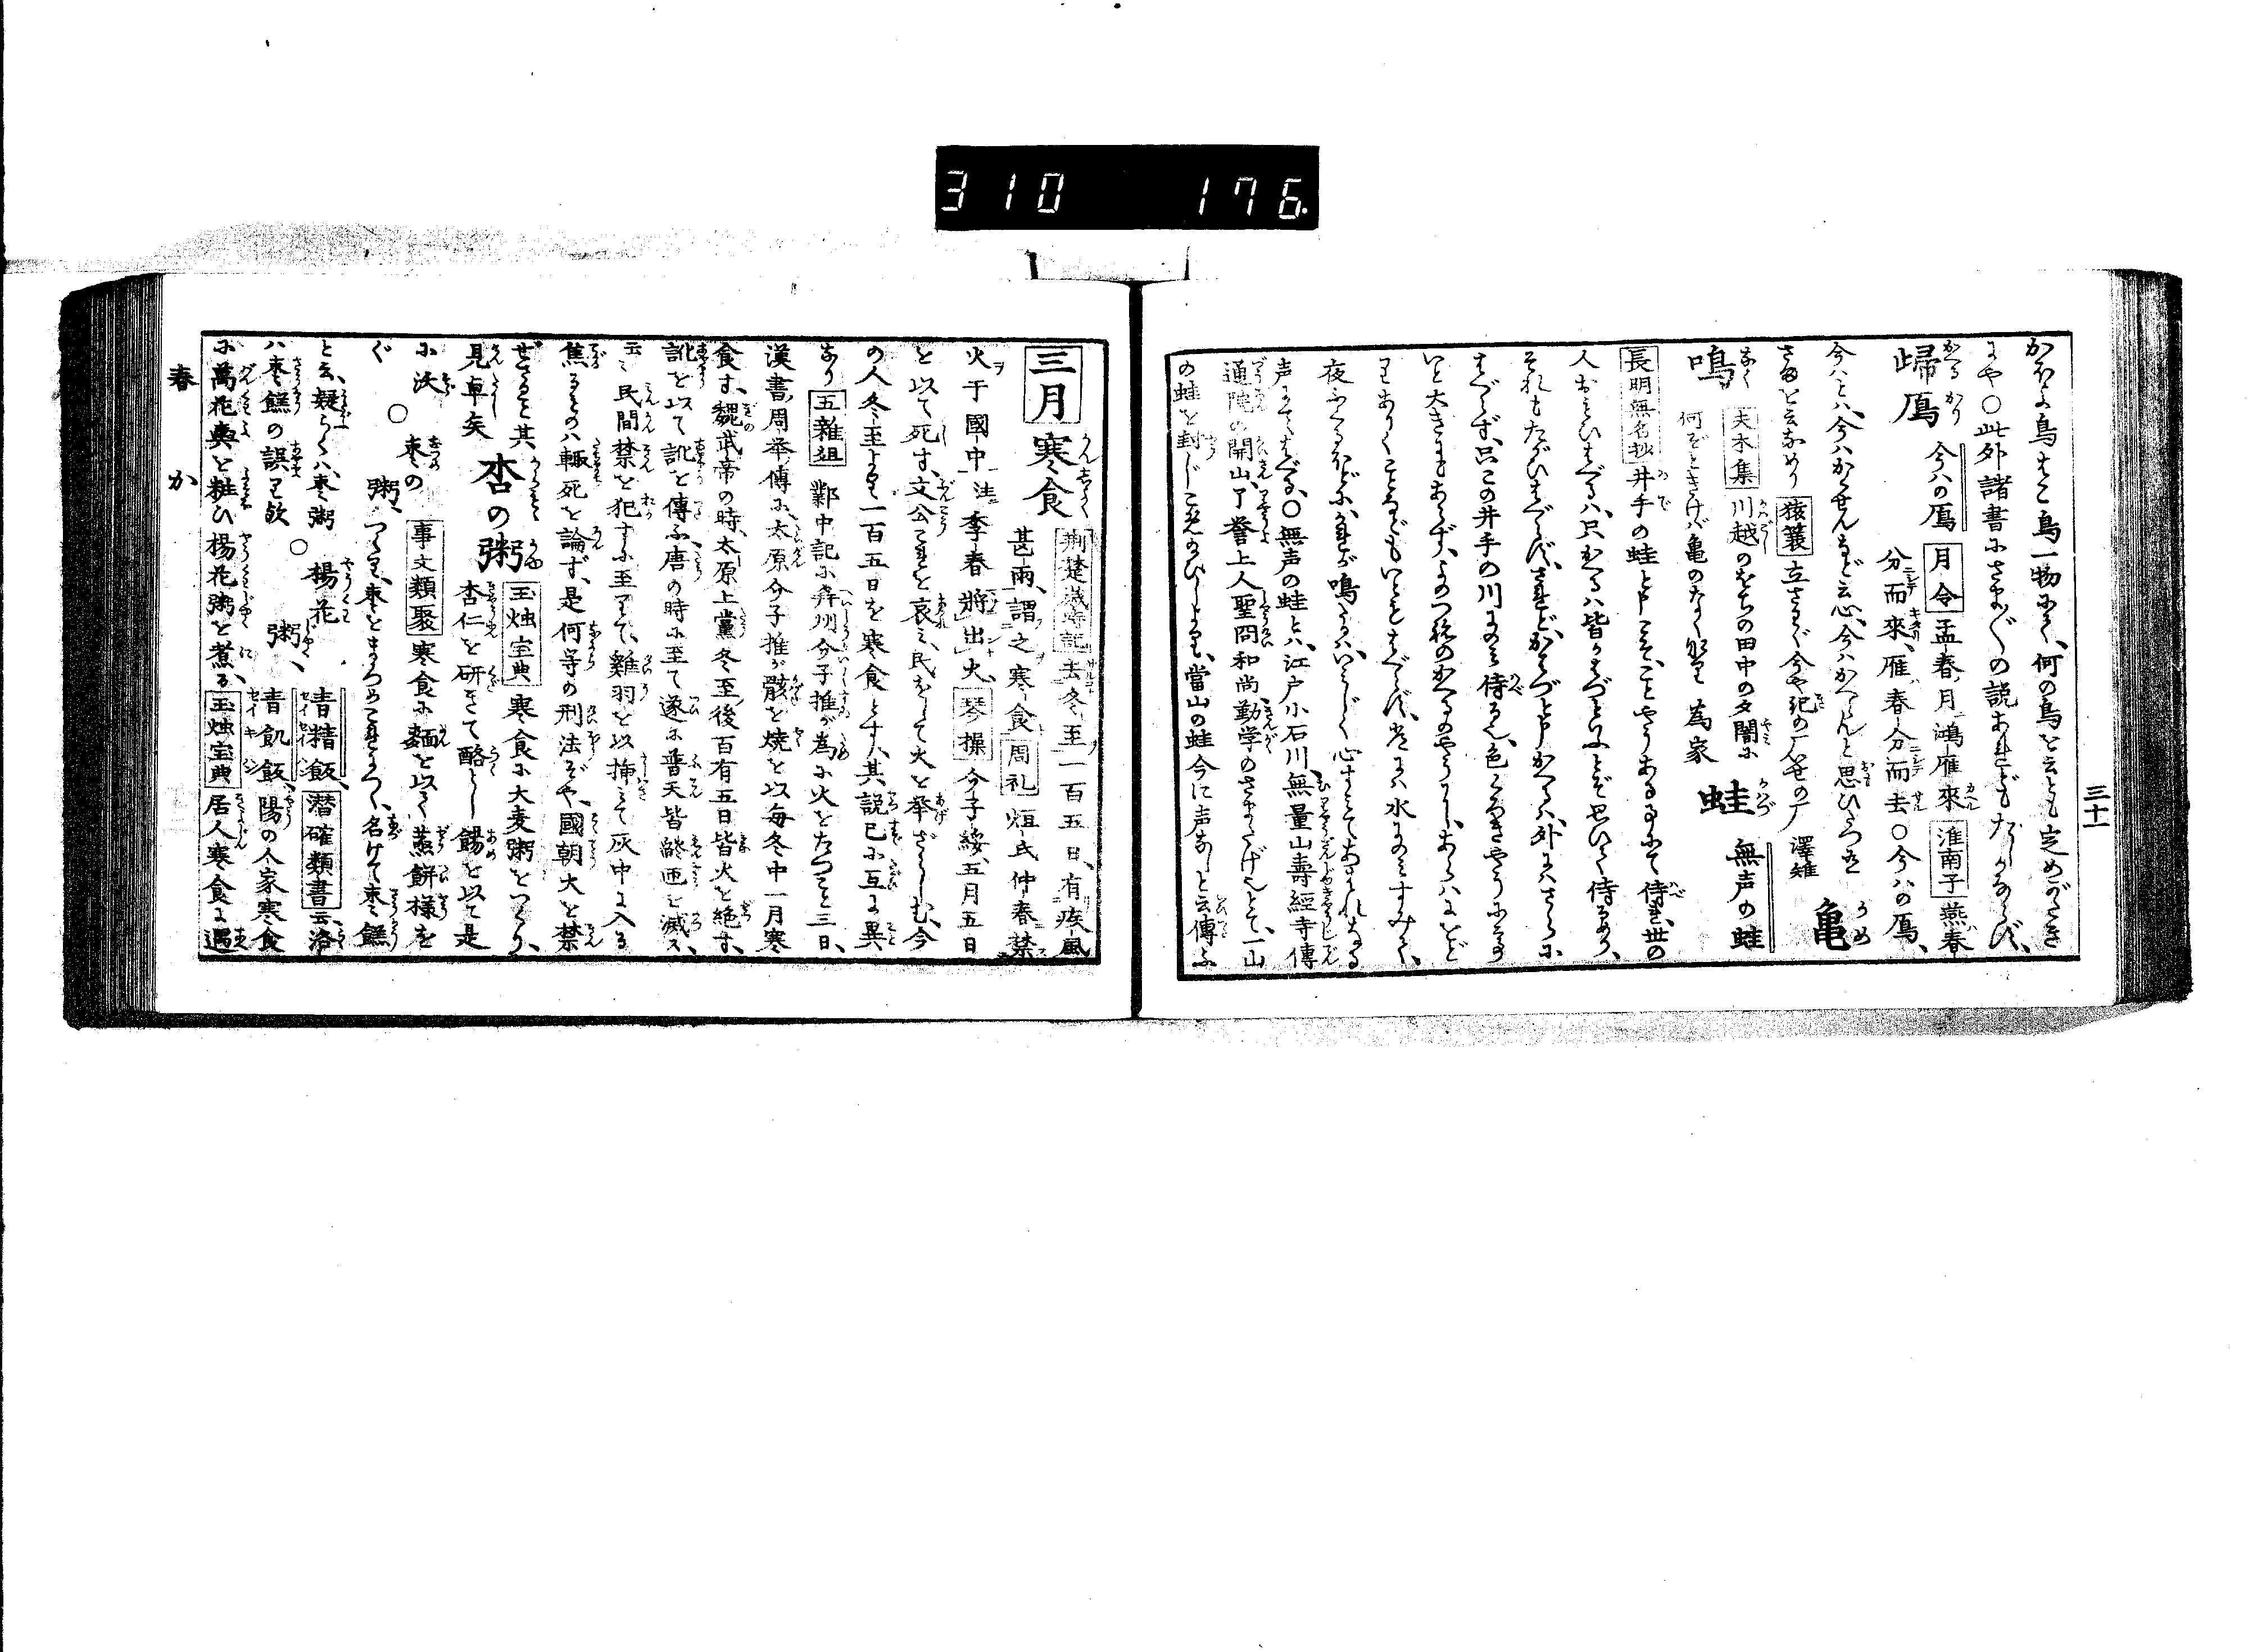 310 176.
三十一
かほよ鳥はこ鳥一物にて、何の鳥と云とも定めがたき
にや〇此外諸書にさま〴〵の説あれどもたしかならず、
歸鴈 今ハの鴈 月令 孟春ノ月鴻雁來 淮南子 燕春
分而來、雁ハ春分而去〇今ハの鴈、
今ハとハ、今ハかへらんなど云心、今ハかへらんと思ひたつを
さして云なめり 猿蓑 立さわぐ今や紀の厂いせの厂 澤雉 亀
鳴 夫木集 川越のをちの田中の夕闇に
何ぞときけバ亀のなくなり 為家 蛙 無声の蛙
長明無名抄 井手の蛙と申こそ、ことやうある事にて侍れ、世の
人おもひはべるハ、只かへるハ皆かはづといふとぞ思ひて侍るめり、
それもたがひはべらず、されど、かはづと申かへるハ、外にハさらに
はべらず、只この井手の川にのみ侍るなり、色くろきやうにて
いと大きにもあらず、よのつねのかへるのやうに、あらハにをど
りありくことなどもいともはべらず、常にハ水にのみすみて、
夜ふくるほどにかれが鳴たるハ、いみじく心すみてあはれなる
声にてはべる、〇無声の蛙とハ、江戸小石川、無量山壽經寺傳
通院の開山、了誉上人聖冏和尚勤学のさまたげなりとて、一山
の蛙を封じこめ給ひしより、當山の蛙今に声なしと云傳ふ
三月 寒食 荊楚歳時記 去冬至一百五日、有疾風
甚雨、謂之寒食 周礼 烜氏仲春禁
火于國中注季春將出火、 琴操 介子綏、五月五日
を以て死す、文公これを哀ミ、民をして火を挙ざらしむ、今
の人冬至より一百五日を寒食とす、其説已に互に異
なり 五雜俎 鄴中記に并州介子推が為に火をたつこと三日、
漢書周挙傳に、太原介子推が骸を焼を以毎冬中一月寒
食す、魏武帝の時、太原上黨冬至後百有五日皆火を絶す、
訛を以て訛を傳ふ、唐の時に至て遂に普天皆烟を滅ス、
云〻民間禁を犯すに至りて、雞羽を以挿ミて灰中に入る
焦るゝものハ輙死を論ず、是何等の刑法ぞや、國朝火を禁
ぜざること其
見卓矣 杏の粥 玉烛宝典 寒食に大麦粥をつくり、
杏仁を研きて酪とし餳を以て是
に沃ぐ 〇棗の粥、 事文類聚 寒食に麺を以て蒸餅様を
つくり、棗をまつめこれをつく、名けて棗䭅
と云、疑らくハ、棗粥
ハ棗䭅の誤り歟 〇楊花粥、 青精飯、 潜確類書 云、洛
青飢飯、 陽の人家寒食
に萬花輿を粧ひ楊花粥を煮る、 玉烛宝典 居人寒食に遇
春 か